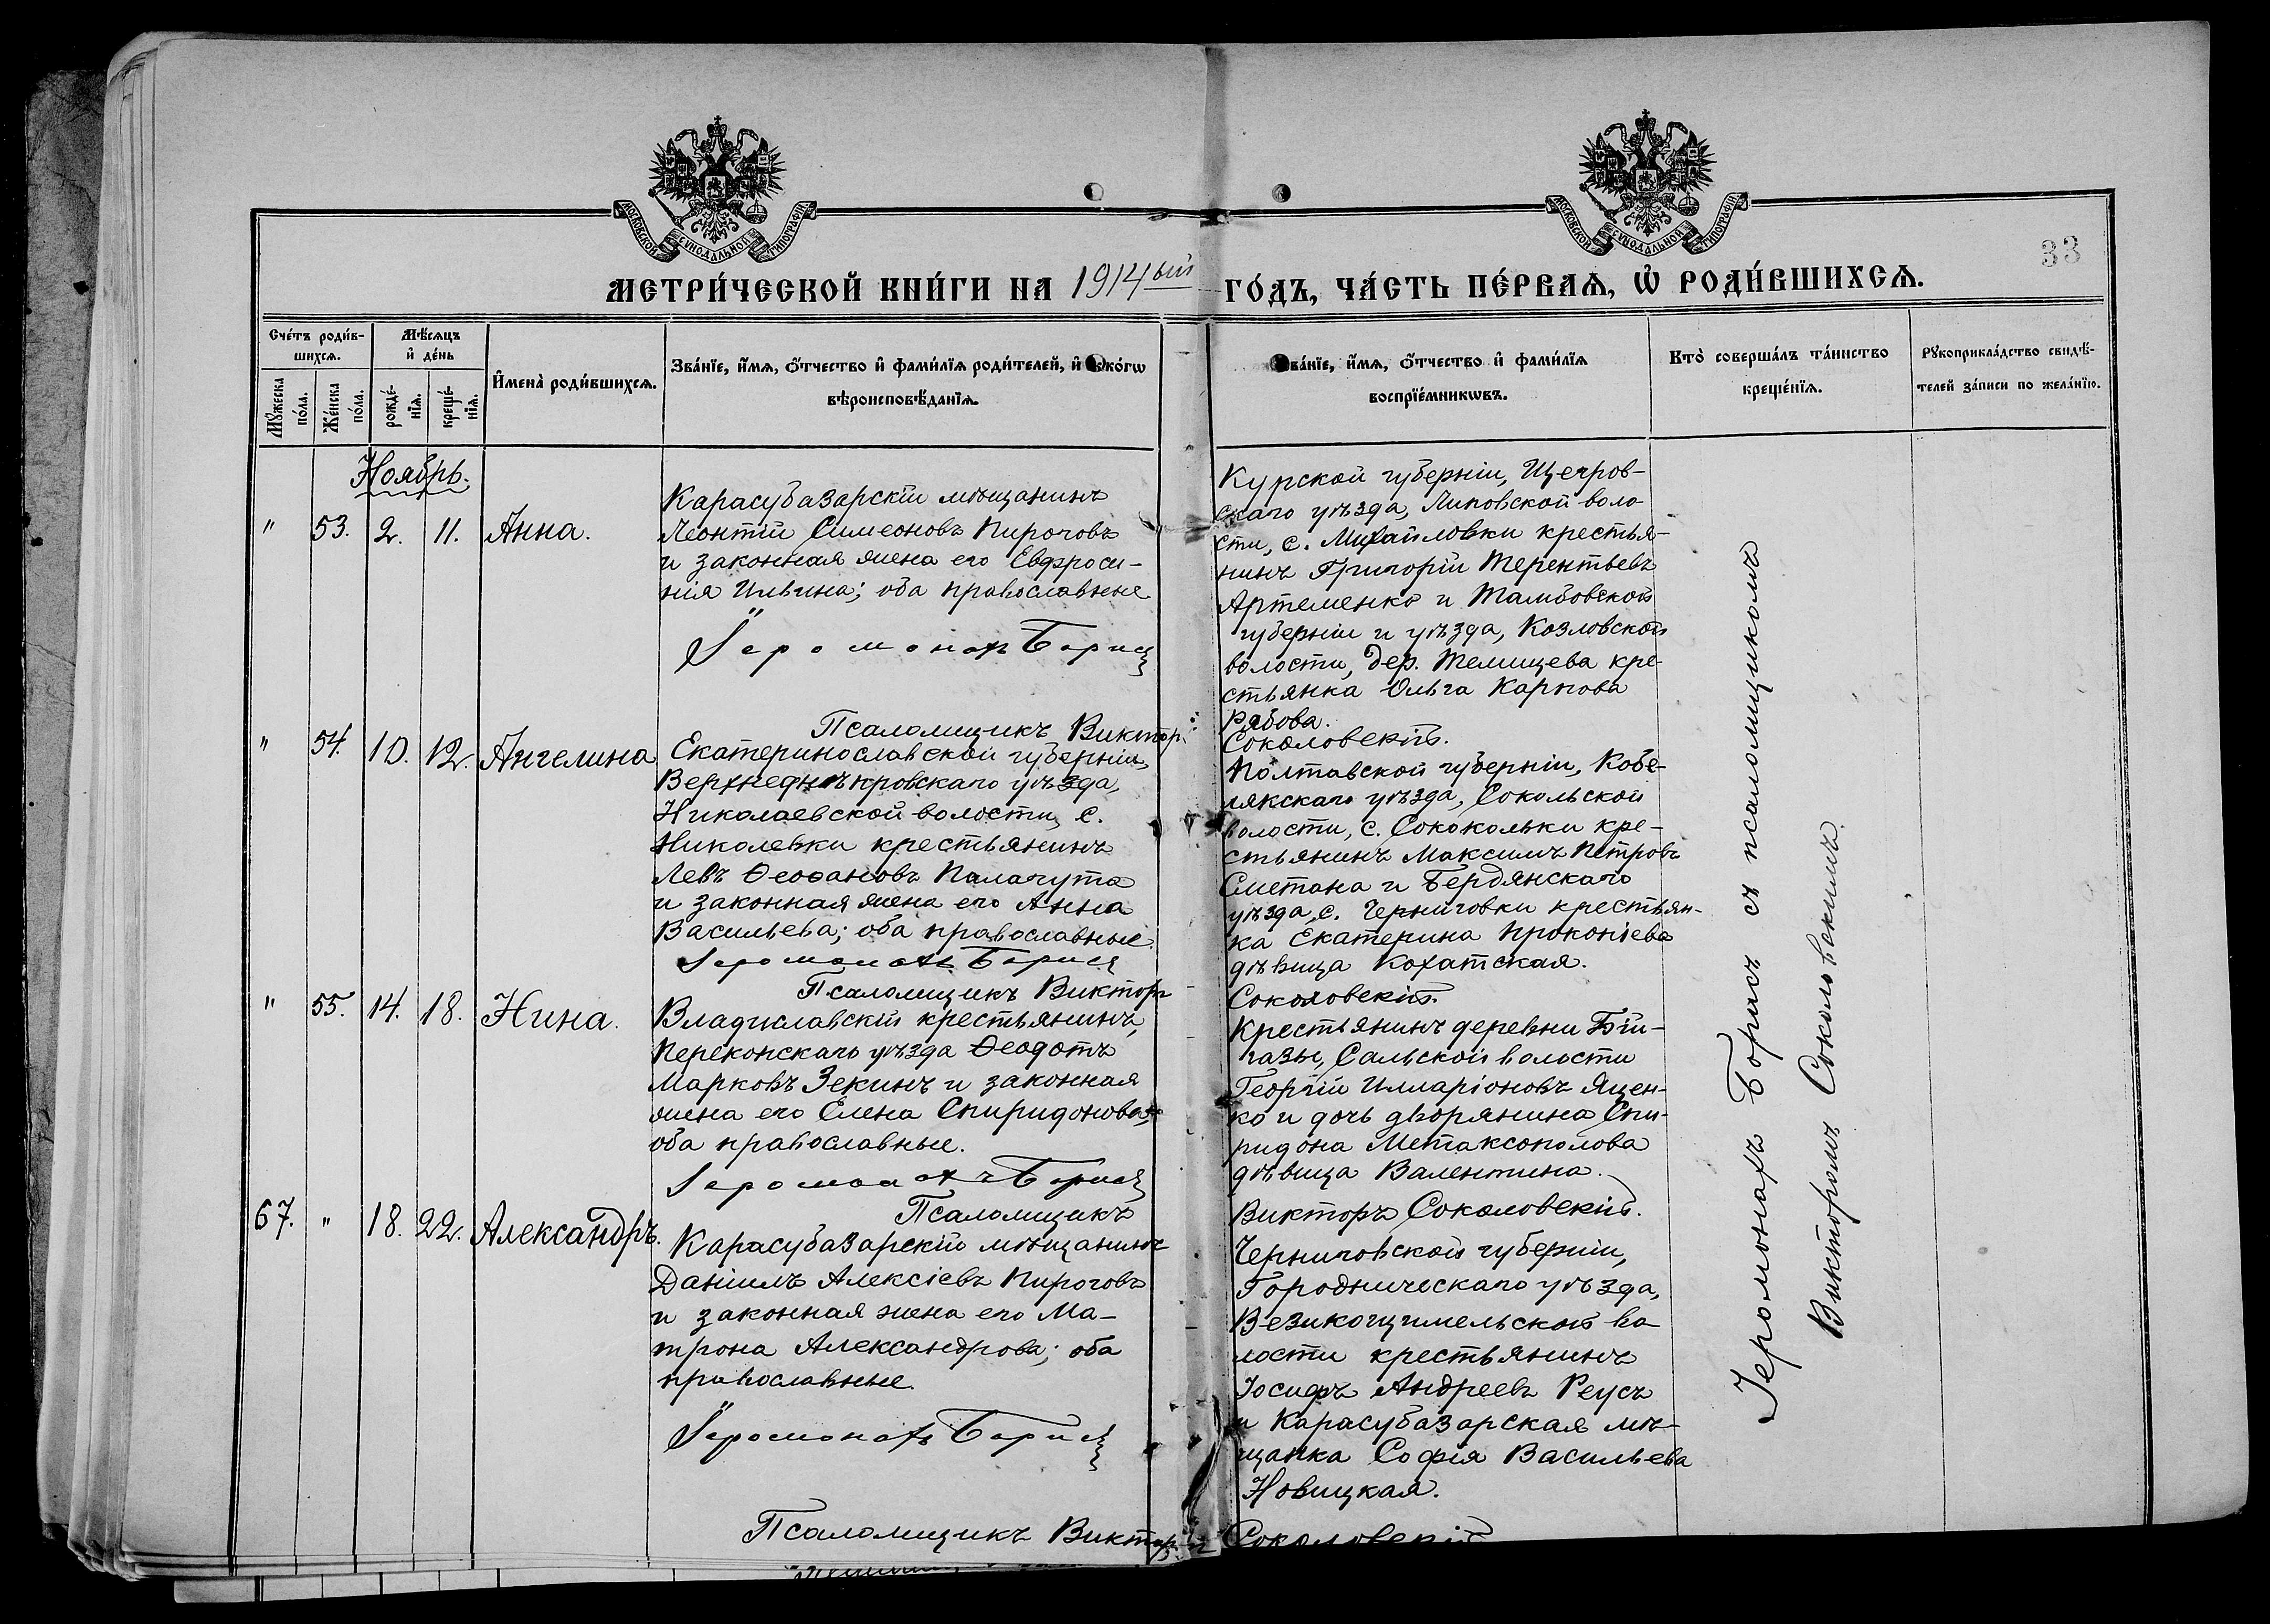 МОСКОВСКОЙ СѴНОДАЛЬНОЙ ТИПОГРАФІИ
МОСКОВСКОЙ СѴНОДАЛЬНОЙ ТИПОГРАФІИ
33
МЕТРИ́ЧЕСКОЙ КНИ́ГИ НА 1914ый ГО́ДЪ, ЧА́СТЬ ПЕ́РВАѦ, Ѡ҆ РОДИ́ВШИХСѦ.
Сче́тъ роди́в-
шихсѧ.
Мꙋ́жеска
по́ла.
Же́нска
по́ла.
Мѣ́сяцъ
и҆ де́нь
рожде́-
нїѧ.
креще́-
нїѧ.
И҆мена̀ роди́вшихсѧ.
Зва́нїе, и҆́мѧ, ѻ҆́тчество и҆ фами́лїѧ роди́телей, и҆ како́гѡ
вѣроисповѣ́данїѧ.
Зва́нїе, и҆́мѧ, ѻ҆́тчество и҆ фами́лїѧ
воспрїе́мникѡвъ.
Кто̀ соверша́лъ та́инство
креще́нїѧ.
Рꙋкоприкла́дство свидѣ́-
телей за́писи по жела́нїю.
Ноябрь.
" 53. 2. 11. Анна.
Карасубазарскій мѣщанинъ
Леонтій Симеоновъ Пироговъ
и законная жена его Евфроси-
нія Ильина; оба православные
Іеромонахъ Борисъ
Псаломщикъ Викторъ
Курской губерніи, Щегров-
скаго уѣзда, Липовской воло
сти, с. Михайловки крестья-
нинъ Григорій Терентьевъ
Артеменко и Тамбовской
губерніи и уѣзда, Козловской
волости, дер. Темищева кре-
стьянка Ольга Карпова
Рябова.
Соколовскій.
" 54. 10. 12. Ангелина
Екатеринославской губерніи,
Верхнеднѣпровскаго уѣзда,
Николаевской волости, с.
Николевки крестьянинъ
Левъ Ѳеофановъ Палагута
и законная жена его Анна
Васильева; оба православные.
Іеромонахъ Борисъ
Псаломщикъ Викторъ
Полтавской губерніи, Кобе-
лякскаго уѣзда, Сокольской
волости, с. Сококольки кре-
стьянинъ Максимъ Петровъ
Сметана и Бердянскаго
уѣзда, с. Черниговки крестьян-
ка Екатерина Прокопіева
дѣвица Кохатская.
Соколовскій.
" 55. 14. 18. Нина.
Владиславскій крестьянинъ,
Перекопскаго уѣзда Ѳеодотъ
Марковъ Зекинъ и законная
жена его Елена Спиридонова;
оба православные.
Іеромонахъ Борисъ
Псаломщикъ
Крестьянинъ деревни
Сальской волости
Георгій Илларіоновъ Яцен-
ко и дочь дворянина Спи-
ридона Метаксополова
дѣвица Валентина.
Викторъ Соколовскій.
67. " 18. 22. Александръ.
Карасубазарскій мѣщанинъ
Даніилъ Алексіевъ Пироговъ
и законная жена его Ма-
трона Александрова; оба
православные.
Іеромонахъ Борисъ
Псаломщикъ Викторъ
Черниговской губерніи,
Городническаго уѣзда,
во-
лости крестьянинъ
Іосифъ Андреевъ Реусъ
и Карасубазарская мѣ-
щанка Софія Васильева
Новицкая.
Соколовскій
Іеромонахъ Борисъ съ псаломщикомъ
Викторомъ Соколовскимъ.